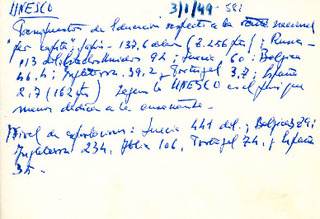 UNESCO 3/1/49
Presupuestos de Educación respecto a la renta nacional
per capita: 137.6 dolares (8.256 pts); Rusia
113 dol. Estados Unidos 92; Suecia 60; Belgica
46.4; Inglaterra 39.2, Portugal 3.7; España
2.7 (162 pts) Segun la UNESCO es el pais que
menos dedica a la enseñanza.
Nivel de exportaciones: Suecia 441 dol.; Belgica 329;
Inglaterra 234, 106, Portugal 74, y España
35.